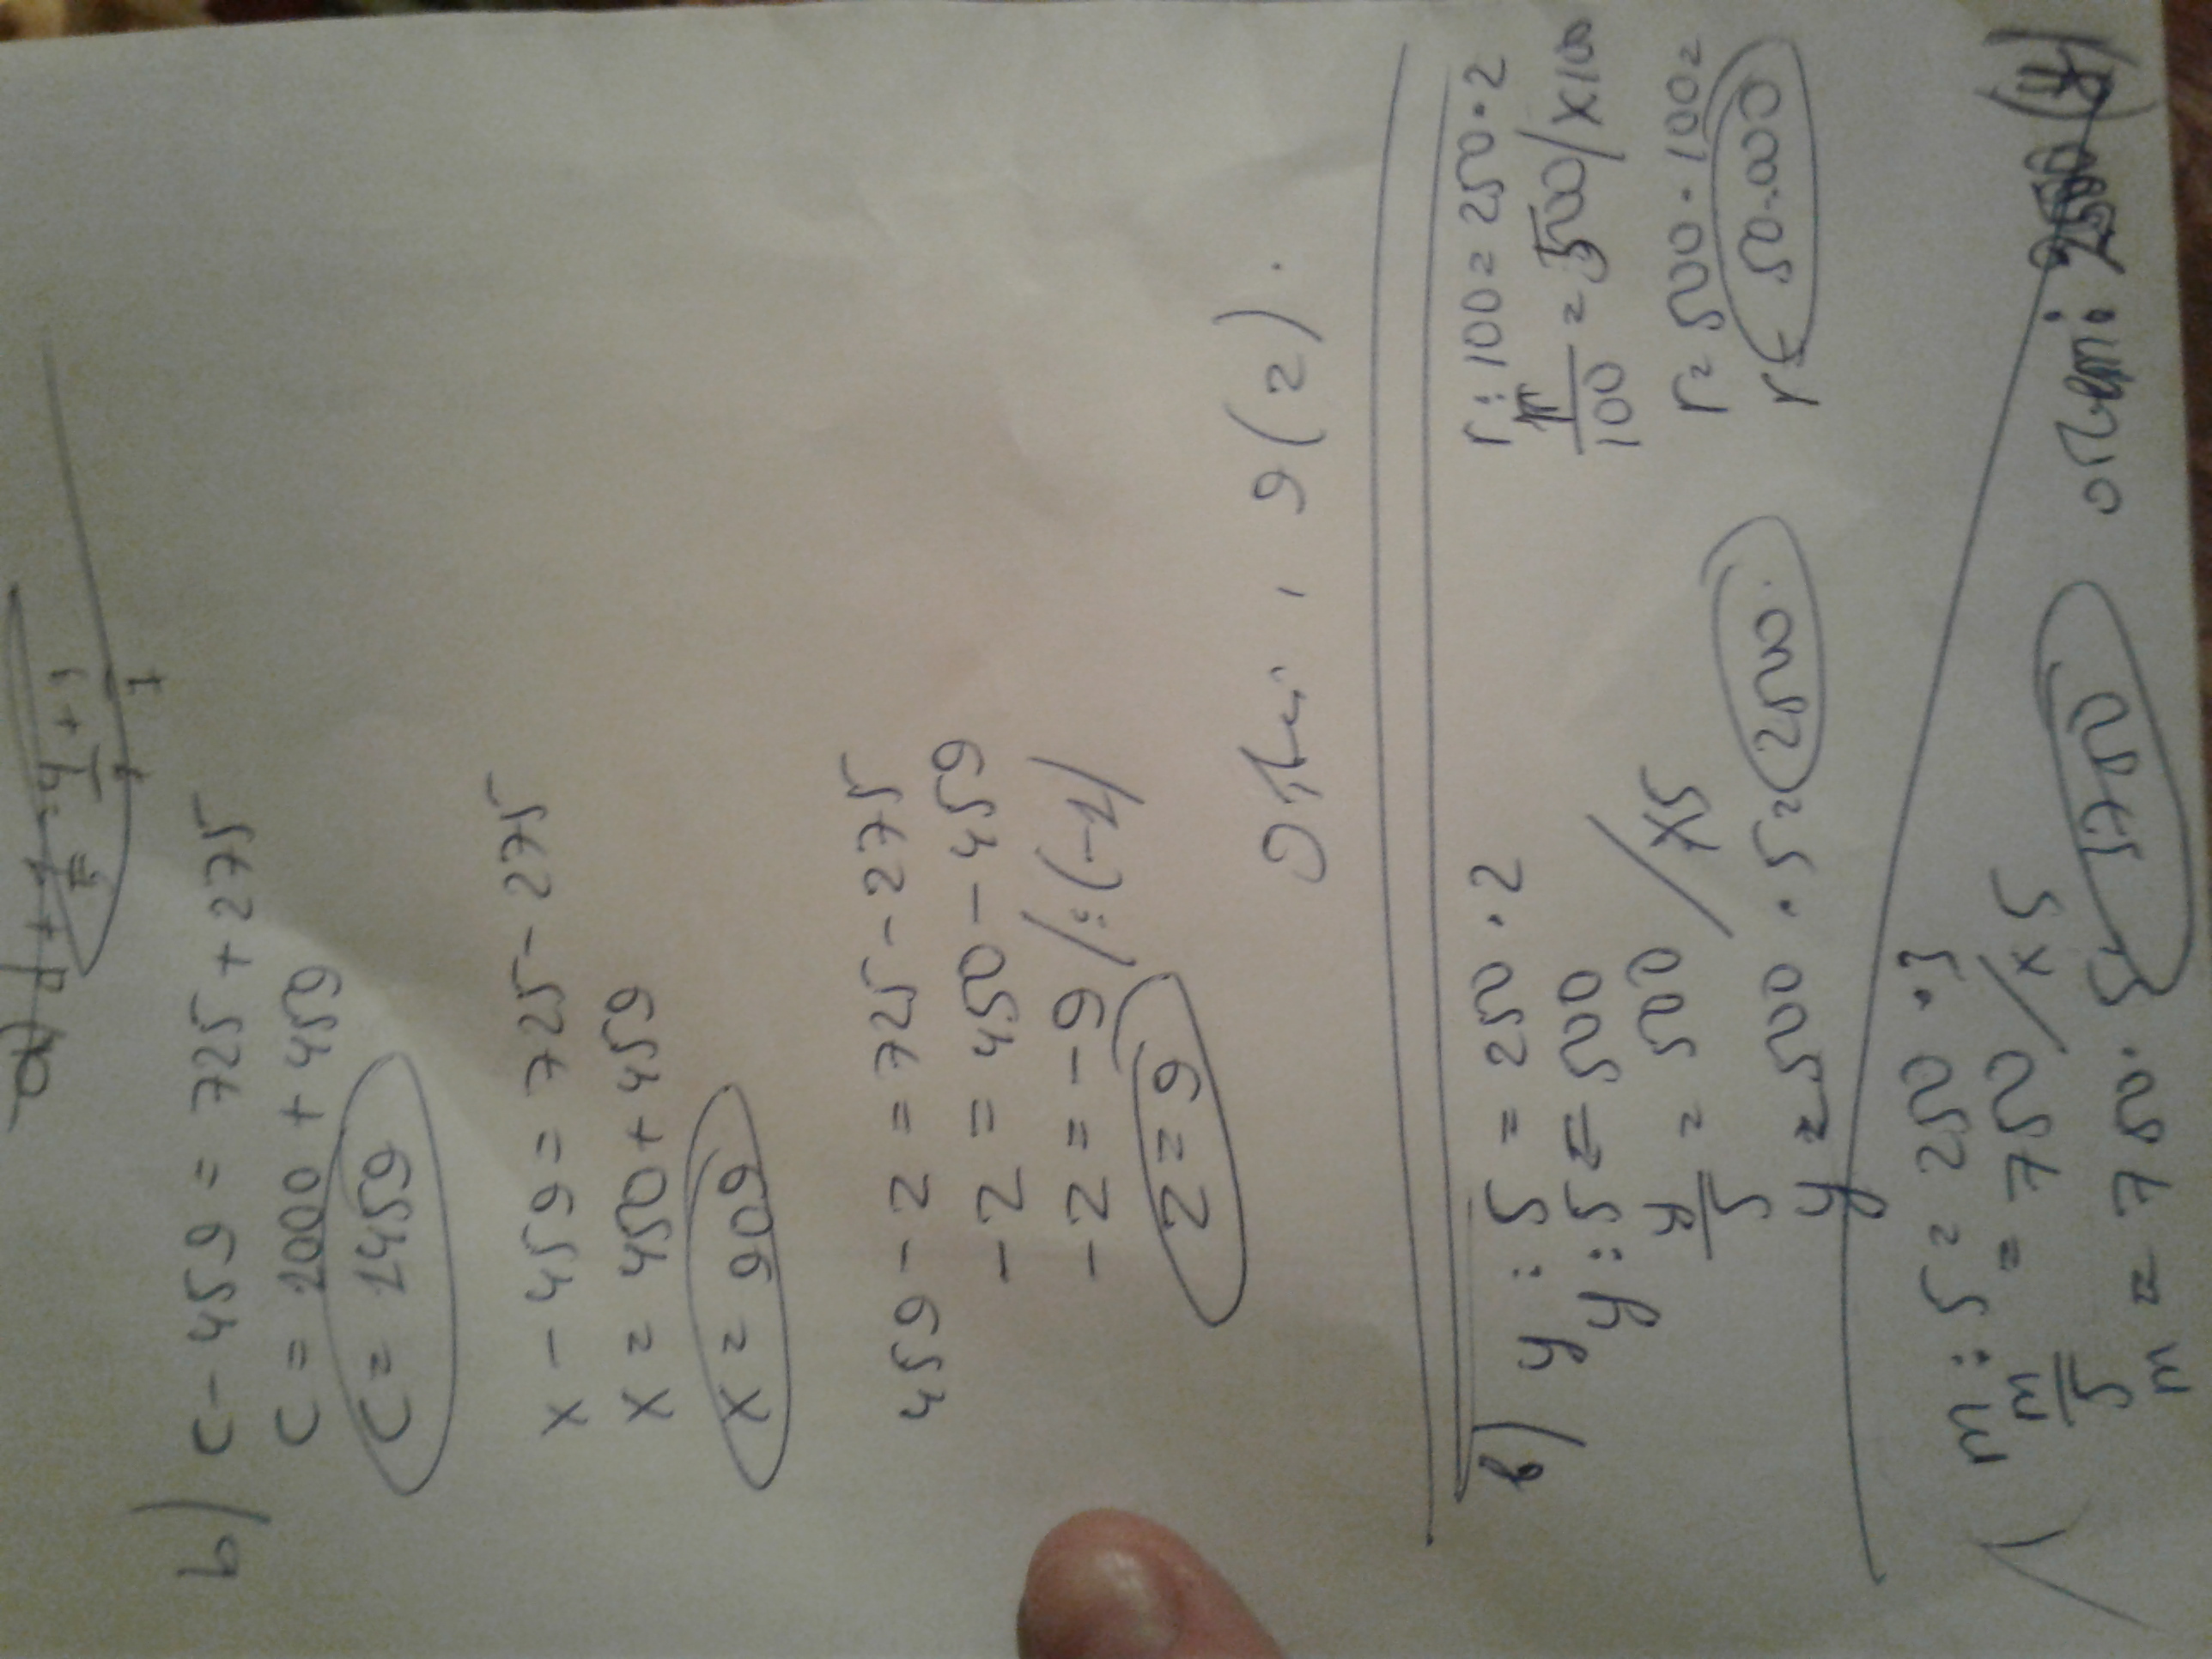 b) c - 459 = 725 + 275
c = 1000 + 459
c = 1459
x - 459 = 725 - 275
x = 450 + 459
x = 909
459 - z = 725 - 275
- z = 450 - 459
- z = -9 /:(-1)
z = 9
9 (z).
в) y : 5 = 250 · 2
y : 5 = 500
y/5 = 500 / x5
y = 500 · 5 = 2500.
r : 100 = 250 · 2
r/100 = 500 / x100
r = 500 · 100 =
r = 50.000
m : 5 = 250 · 3
m/5 = 750 / x5
m = 750 · 5